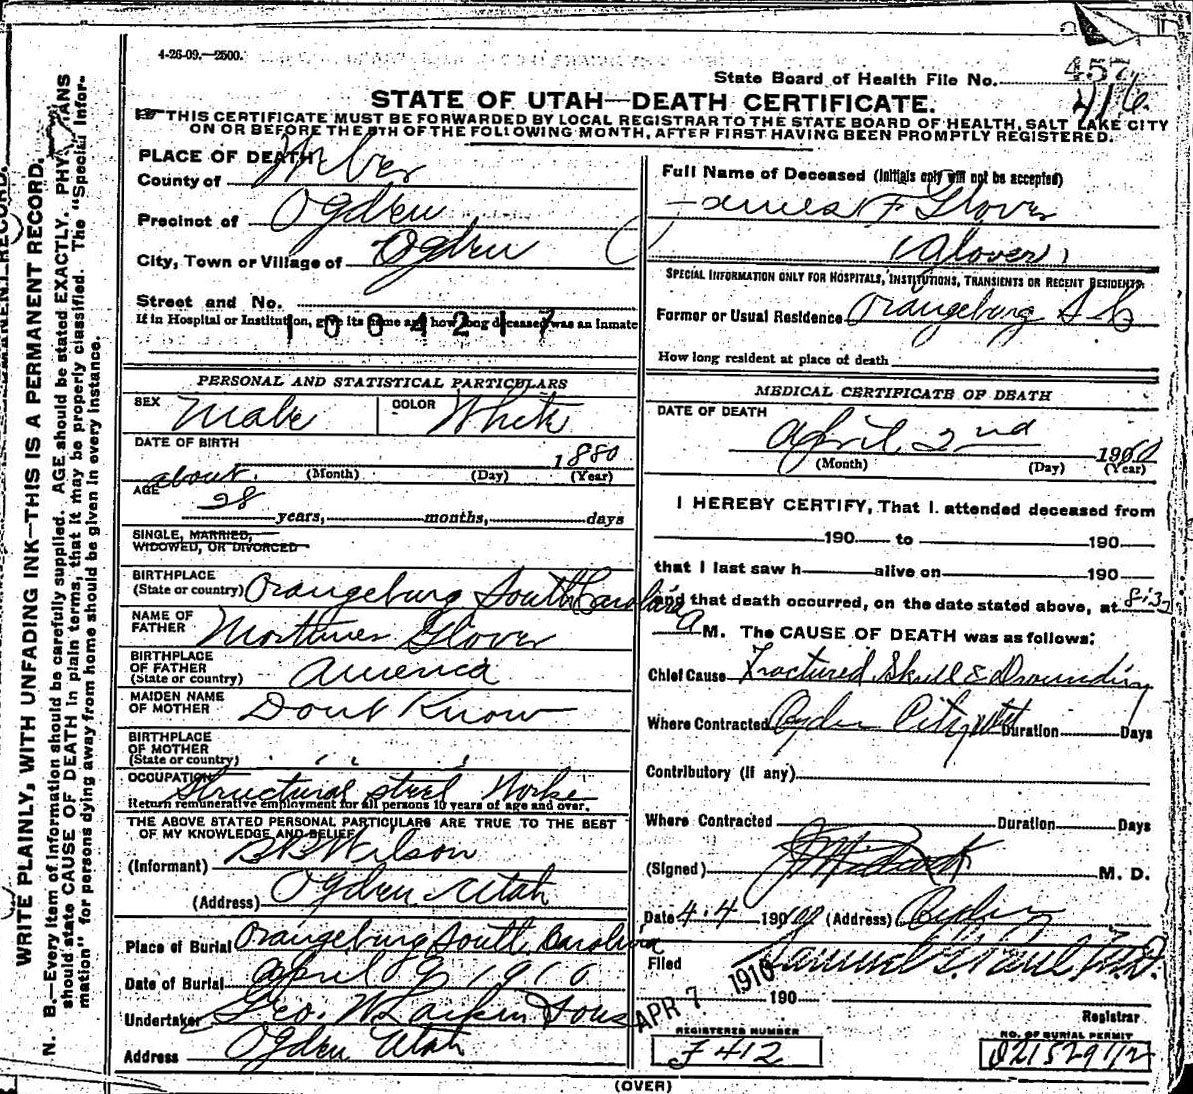 4-26-09.—2500.
State Board of Health File No. 457
416
STATE OF UTAH—DEATH CERTIFICATE.
THIS CERTIFICATE MUST BE FORWARDED BY LOCAL REGISTRAR TO THE STATE BOARD OF HEALTH, SALT LAKE CITY
ON OR BEFORE THE 5TH OF THE FOLLOWING MONTH, AFTER FIRST HAVING BEEN PROMPTLY REGISTERED.
WRITE PLAINLY, WITH UNFADING INK—THIS IS A PERMANENT RECORD.
N. B.—Every item of information should be carefully supplied. AGE should be stated EXACTLY. PHYSICIANS
should state CAUSE OF DEATH in plain terms, that it may be properly classified. The "Special Infor-
mation" for persons dying away from home should be given in every instance.
PLACE OF DEATH
County of Weber
Precinct of Ogden
City, Town or Village of Ogden
Street and No.
If in Hospital or Institution, give its name and how long deceased was an Inmate
1004217
PERSONAL AND STATISTICAL PARTICULARS
SEX Male COLOR White
DATE OF BIRTH
about 1880
(Month) (Day) (Year)
AGE 28
years, months, days
SINGLE, MARRIED,
WIDOWED, OR DIVORCED
BIRTHPLACE
(State or country) Orangeburg South Carolina
NAME OF
FATHER Mortimer Glover
BIRTHPLACE
OF FATHER
(State or country) America
MAIDEN NAME
OF MOTHER Dont Know
BIRTHPLACE
OF MOTHER
(State or country) " "
OCCUPATION Structural steel Worker
Return remunerative employment for all persons 10 years of age and over.
THE ABOVE STATED PERSONAL PARTICULARS ARE TRUE TO THE BEST
OF MY KNOWLEDGE AND BELIEF
(Informant) B B Wilson
(Address) Ogden Utah
Place of Burial Orangeburg South Carolina
Date of Burial April 9 1910
Undertaker Geo. W Larkin Sons
Address Ogden Utah
Full Name of Deceased (Initials only will not be accepted)
James F Glover
(Glover)
SPECIAL INFORMATION ONLY FOR HOSPITALS, INSTITUTIONS, TRANSIENTS OR RECENT RESIDENTS.
Former or Usual Residence Orangeburg S C
How long resident at place of death
MEDICAL CERTIFICATE OF DEATH
DATE OF DEATH
April 2nd 1910
(Month) (Day) (Year)
I HEREBY CERTIFY, That I attended deceased from
190 to 190
that I last saw h alive on 190
and that death occurred, on the date stated above, at 8:30
A M. The CAUSE OF DEATH was as follows:
Chief Cause Fractured Skull & Drounding
Where Contracted Ogden City Duration Days
Contributory (if any)
Where Contracted Duration Days
(Signed) M. D.
Date 4-4 190 (Address) Ogden
Filed Samuel G. Paul, M.D.
APR 7 1910 190
Registrar
REGISTERED NUMBER
F 412
NO. OF BURIAL PERMIT
(OVER)